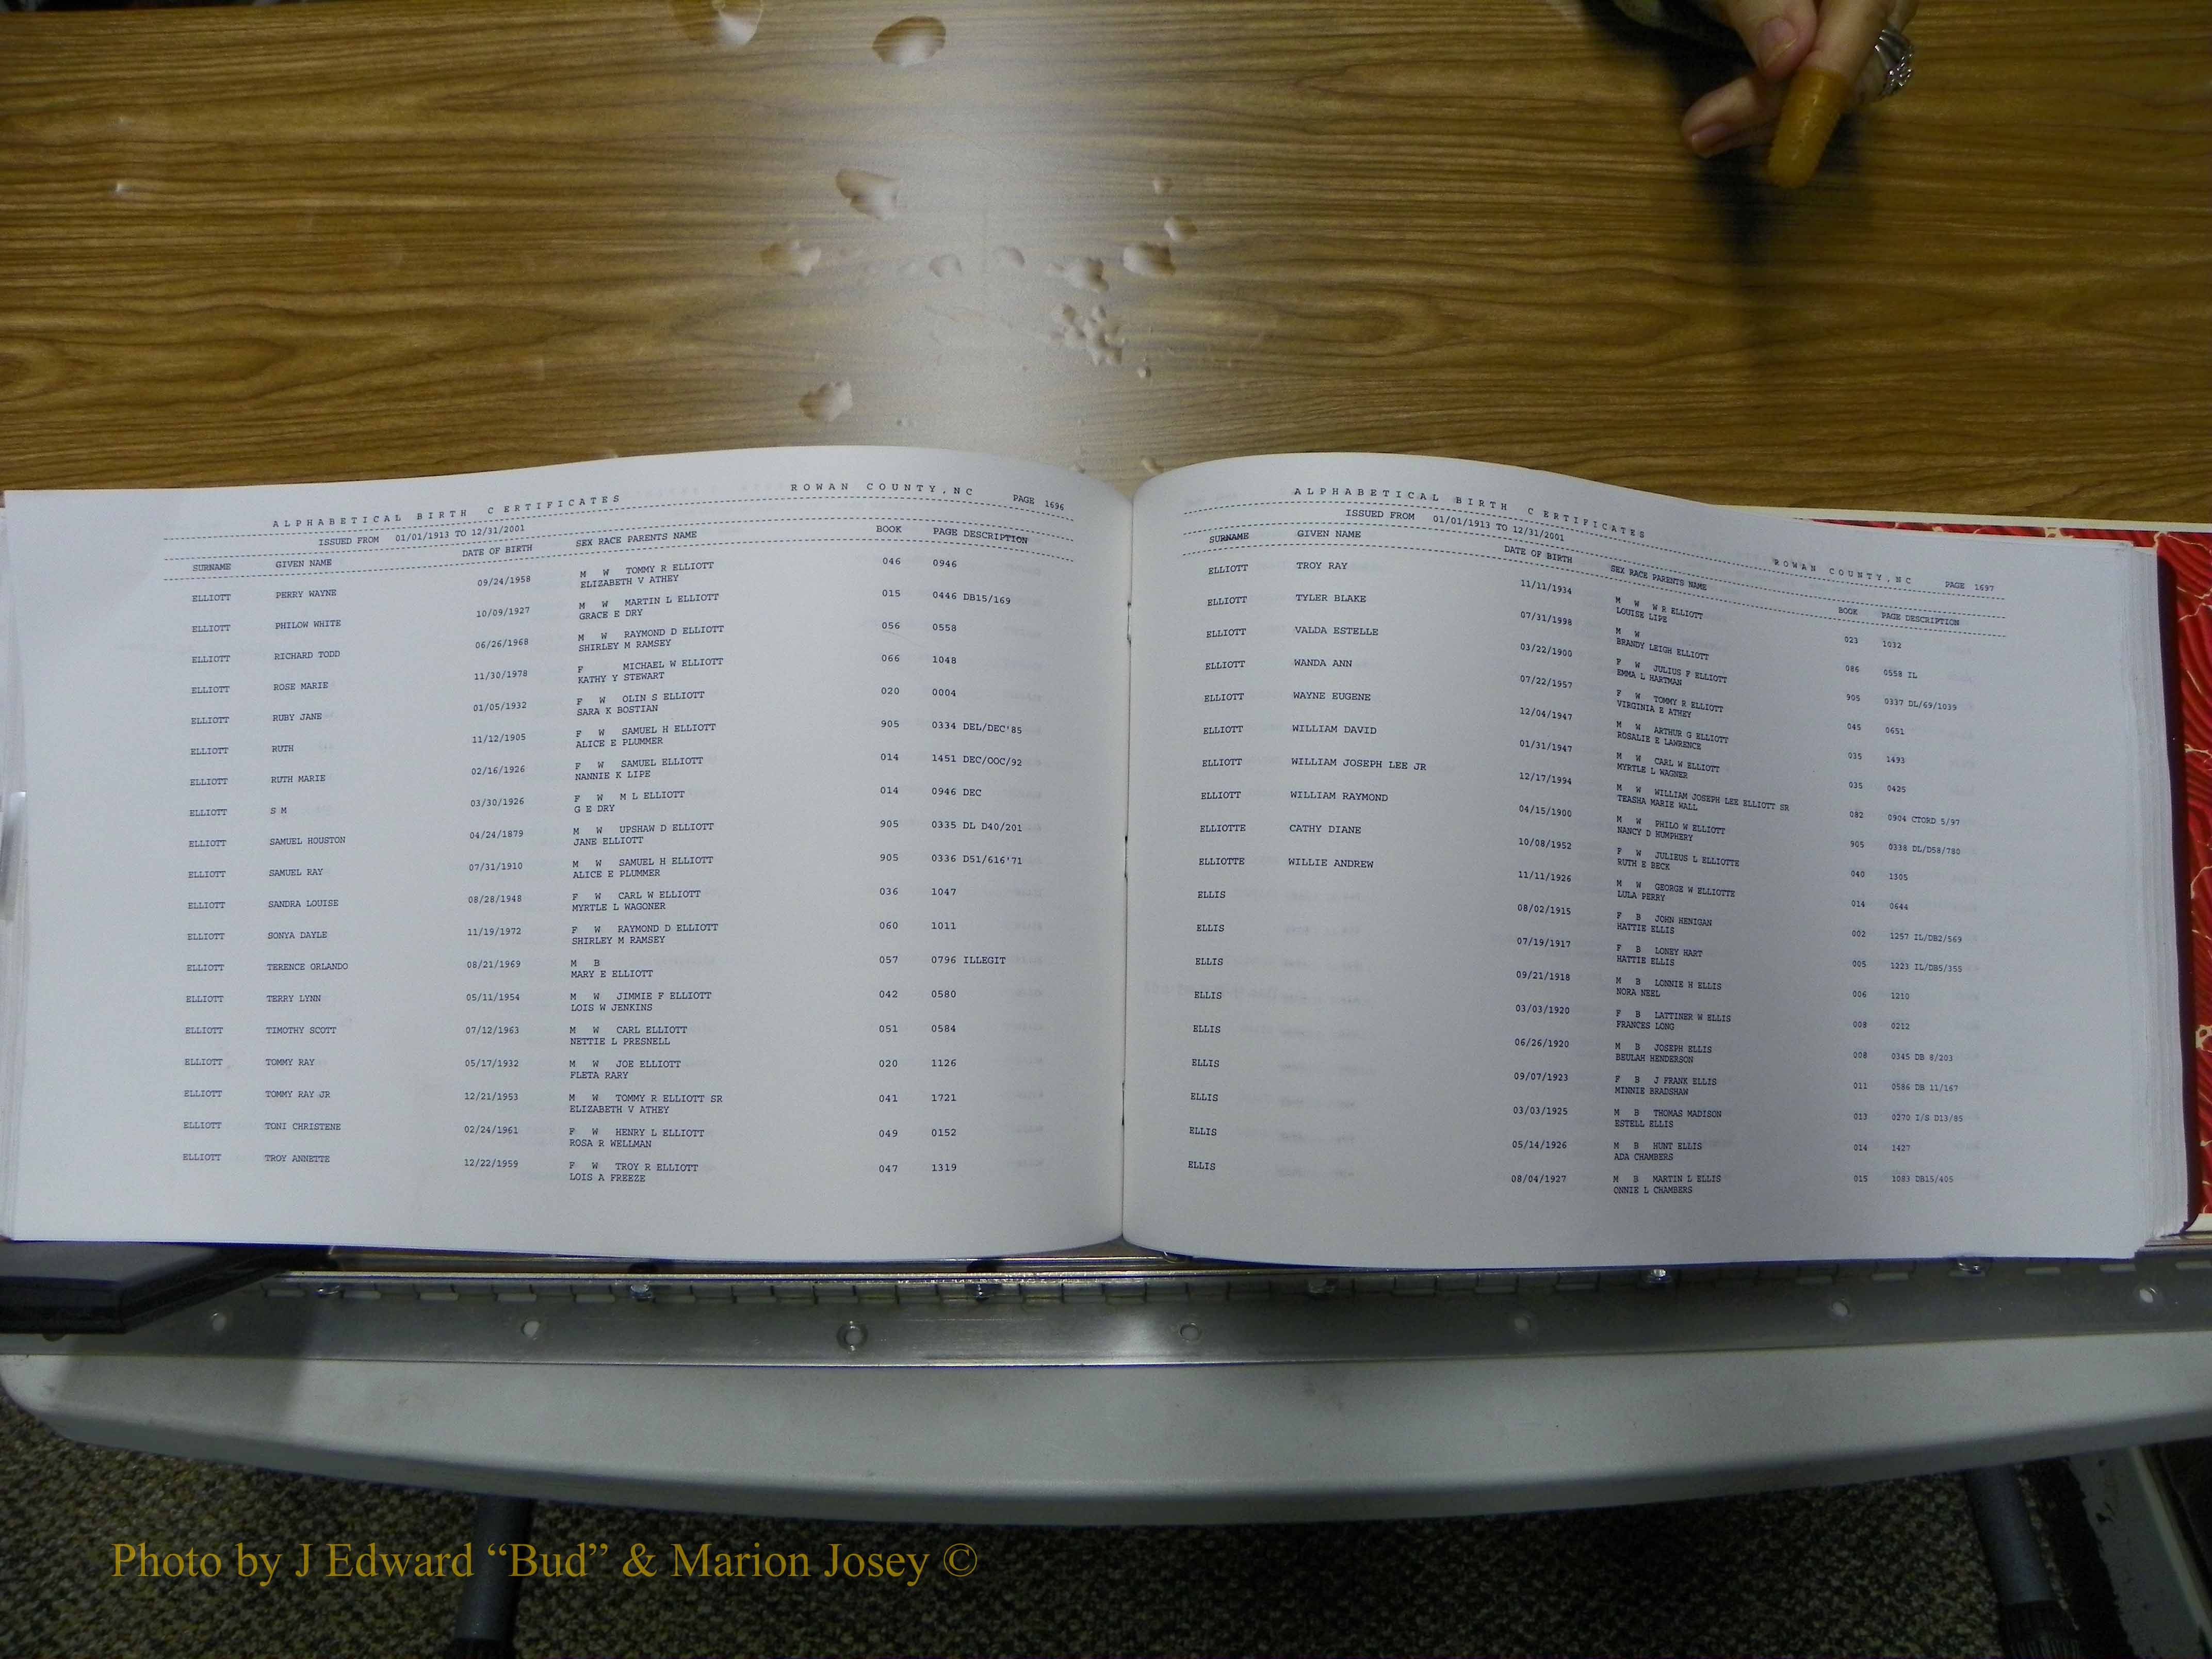 ALPHABETICAL BIRTH CERTIFICATES ROWAN COUNTY,NC PAGE 1696
ISSUED FROM 01/01/1913 TO 12/31/2001
SURNAME GIVEN NAME DATE OF BIRTH SEX RACE PARENTS NAME BOOK PAGE DESCRIPTION
ELLIOTT PERRY WAYNE 09/24/1958 M W TOMMY R ELLIOTT 046 0946
ELIZABETH V ATHEY
ELLIOTT PHILOW WHITE 10/09/1927 M W MARTIN L ELLIOTT 015 0446 DB15/169
GRACE E DRY
ELLIOTT RICHARD TODD 06/26/1968 M W RAYMOND D ELLIOTT 056 0558
SHIRLEY M RAMSEY
ELLIOTT ROSE MARIE 11/30/1978 F MICHAEL W ELLIOTT 066 1048
KATHY Y STEWART
ELLIOTT RUBY JANE 01/05/1932 F W OLIN S ELLIOTT 020 0004
SARA K BOSTIAN
ELLIOTT RUTH 11/12/1905 F W SAMUEL H ELLIOTT 905 0334 DEL/DEC'85
ALICE E PLUMMER
ELLIOTT RUTH MARIE 02/16/1926 F W SAMUEL ELLIOTT 014 1451 DEC/OOC/92
NANNIE K LIPE
ELLIOTT S M 03/30/1926 F W M L ELLIOTT 014 0946 DEC
G E DRY
ELLIOTT SAMUEL HOUSTON 04/24/1879 M W UPSHAW D ELLIOTT 905 0335 DL D40/201
JANE ELLIOTT
ELLIOTT SAMUEL RAY 07/31/1910 M W SAMUEL H ELLIOTT 905 0336 D51/616'71
ALICE E PLUMMER
ELLIOTT SANDRA LOUISE 08/28/1948 F W CARL W ELLIOTT 036 1047
MYRTLE L WAGONER
ELLIOTT SONYA DAYLE 11/19/1972 F W RAYMOND D ELLIOTT 060 1011
SHIRLEY M RAMSEY
ELLIOTT TERENCE ORLANDO 08/21/1969 M B 057 0796 ILLEGIT
MARY E ELLIOTT
ELLIOTT TERRY LYNN 05/11/1954 M W JIMMIE F ELLIOTT 042 0580
LOIS W JENKINS
ELLIOTT TIMOTHY SCOTT 07/12/1963 M W CARL ELLIOTT 051 0584
NETTIE L PRESNELL
ELLIOTT TOMMY RAY 05/17/1932 M W JOE ELLIOTT 020 1126
FLETA RARY
ELLIOTT TOMMY RAY JR 12/21/1953 M W TOMMY R ELLIOTT SR 041 1721
ELIZABETH V ATHEY
ELLIOTT TONI CHRISTENE 02/24/1961 F W HENRY L ELLIOTT 049 0152
ROSA R WELLMAN
ELLIOTT TROY ANNETTE 12/22/1959 F W TROY R ELLIOTT 047 1319
LOIS A FREEZE
ALPHABETICAL BIRTH CERTIFICATES ROWAN COUNTY,NC PAGE 1697
ISSUED FROM 01/01/1913 TO 12/31/2001
SURNAME GIVEN NAME DATE OF BIRTH SEX RACE PARENTS NAME BOOK PAGE DESCRIPTION
ELLIOTT TROY RAY 11/11/1934 M W W R ELLIOTT 023 1032
LOUISE LIPE
ELLIOTT TYLER BLAKE 07/31/1998 M W 086 0558 IL
BRANDY LEIGH ELLIOTT
ELLIOTT VALDA ESTELLE 03/22/1900 F W JULIUS F ELLIOTT 905 0337 DL/69/1039
EMMA L HARTMAN
ELLIOTT WANDA ANN 07/22/1957 F W TOMMY R ELLIOTT 045 0651
VIRGINIA E ATHEY
ELLIOTT WAYNE EUGENE 12/04/1947 M W ARTHUR G ELLIOTT 035 1493
ROSALIE E LAWRENCE
ELLIOTT WILLIAM DAVID 01/31/1947 M W CARL W ELLIOTT 035 0425
MYRTLE L WAGNER
ELLIOTT WILLIAM JOSEPH LEE JR 12/17/1994 M W WILLIAM JOSEPH LEE ELLIOTT SR 082 0904 CTORD 5/97
TEASHA MARIE WALL
ELLIOTT WILLIAM RAYMOND 04/15/1900 M W PHILO W ELLIOTT 905 0338 DL/D58/780
NANCY D HUMPHERY
ELLIOTTE CATHY DIANE 10/08/1952 F W JULIEUS L ELLIOTTE 040 1305
RUTH E BECK
ELLIOTTE WILLIE ANDREW 11/11/1926 M W GEORGE W ELLIOTTE 014 0644
LULA PERRY
ELLIS 08/02/1915 F B JOHN HENIGAN 002 1257 IL/DB2/569
HATTIE ELLIS
ELLIS 07/19/1917 F B LONEY HART 005 1223 IL/DB5/355
HATTIE ELLIS
ELLIS 09/21/1918 M B LONNIE H ELLIS 006 1210
NORA NEEL
ELLIS 03/03/1920 F B LATTINER W ELLIS 008 0212
FRANCES LONG
ELLIS 06/26/1920 M B JOSEPH ELLIS 008 0345 DB 8/203
BEULAH HENDERSON
ELLIS 09/07/1923 F B J FRANK ELLIS 011 0586 DB 11/167
MINNIE BRADSHAW
ELLIS 03/03/1925 M B THOMAS MADISON 013 0270 I/S D13/85
ESTELL ELLIS
ELLIS 05/14/1926 M B HUNT ELLIS 014 1427
ADA CHAMBERS
ELLIS 08/04/1927 M B MARTIN L ELLIS 015 1083 DB15/405
ONNIE L CHAMBERS
Photo by J Edward “Bud” & Marion Josey ©